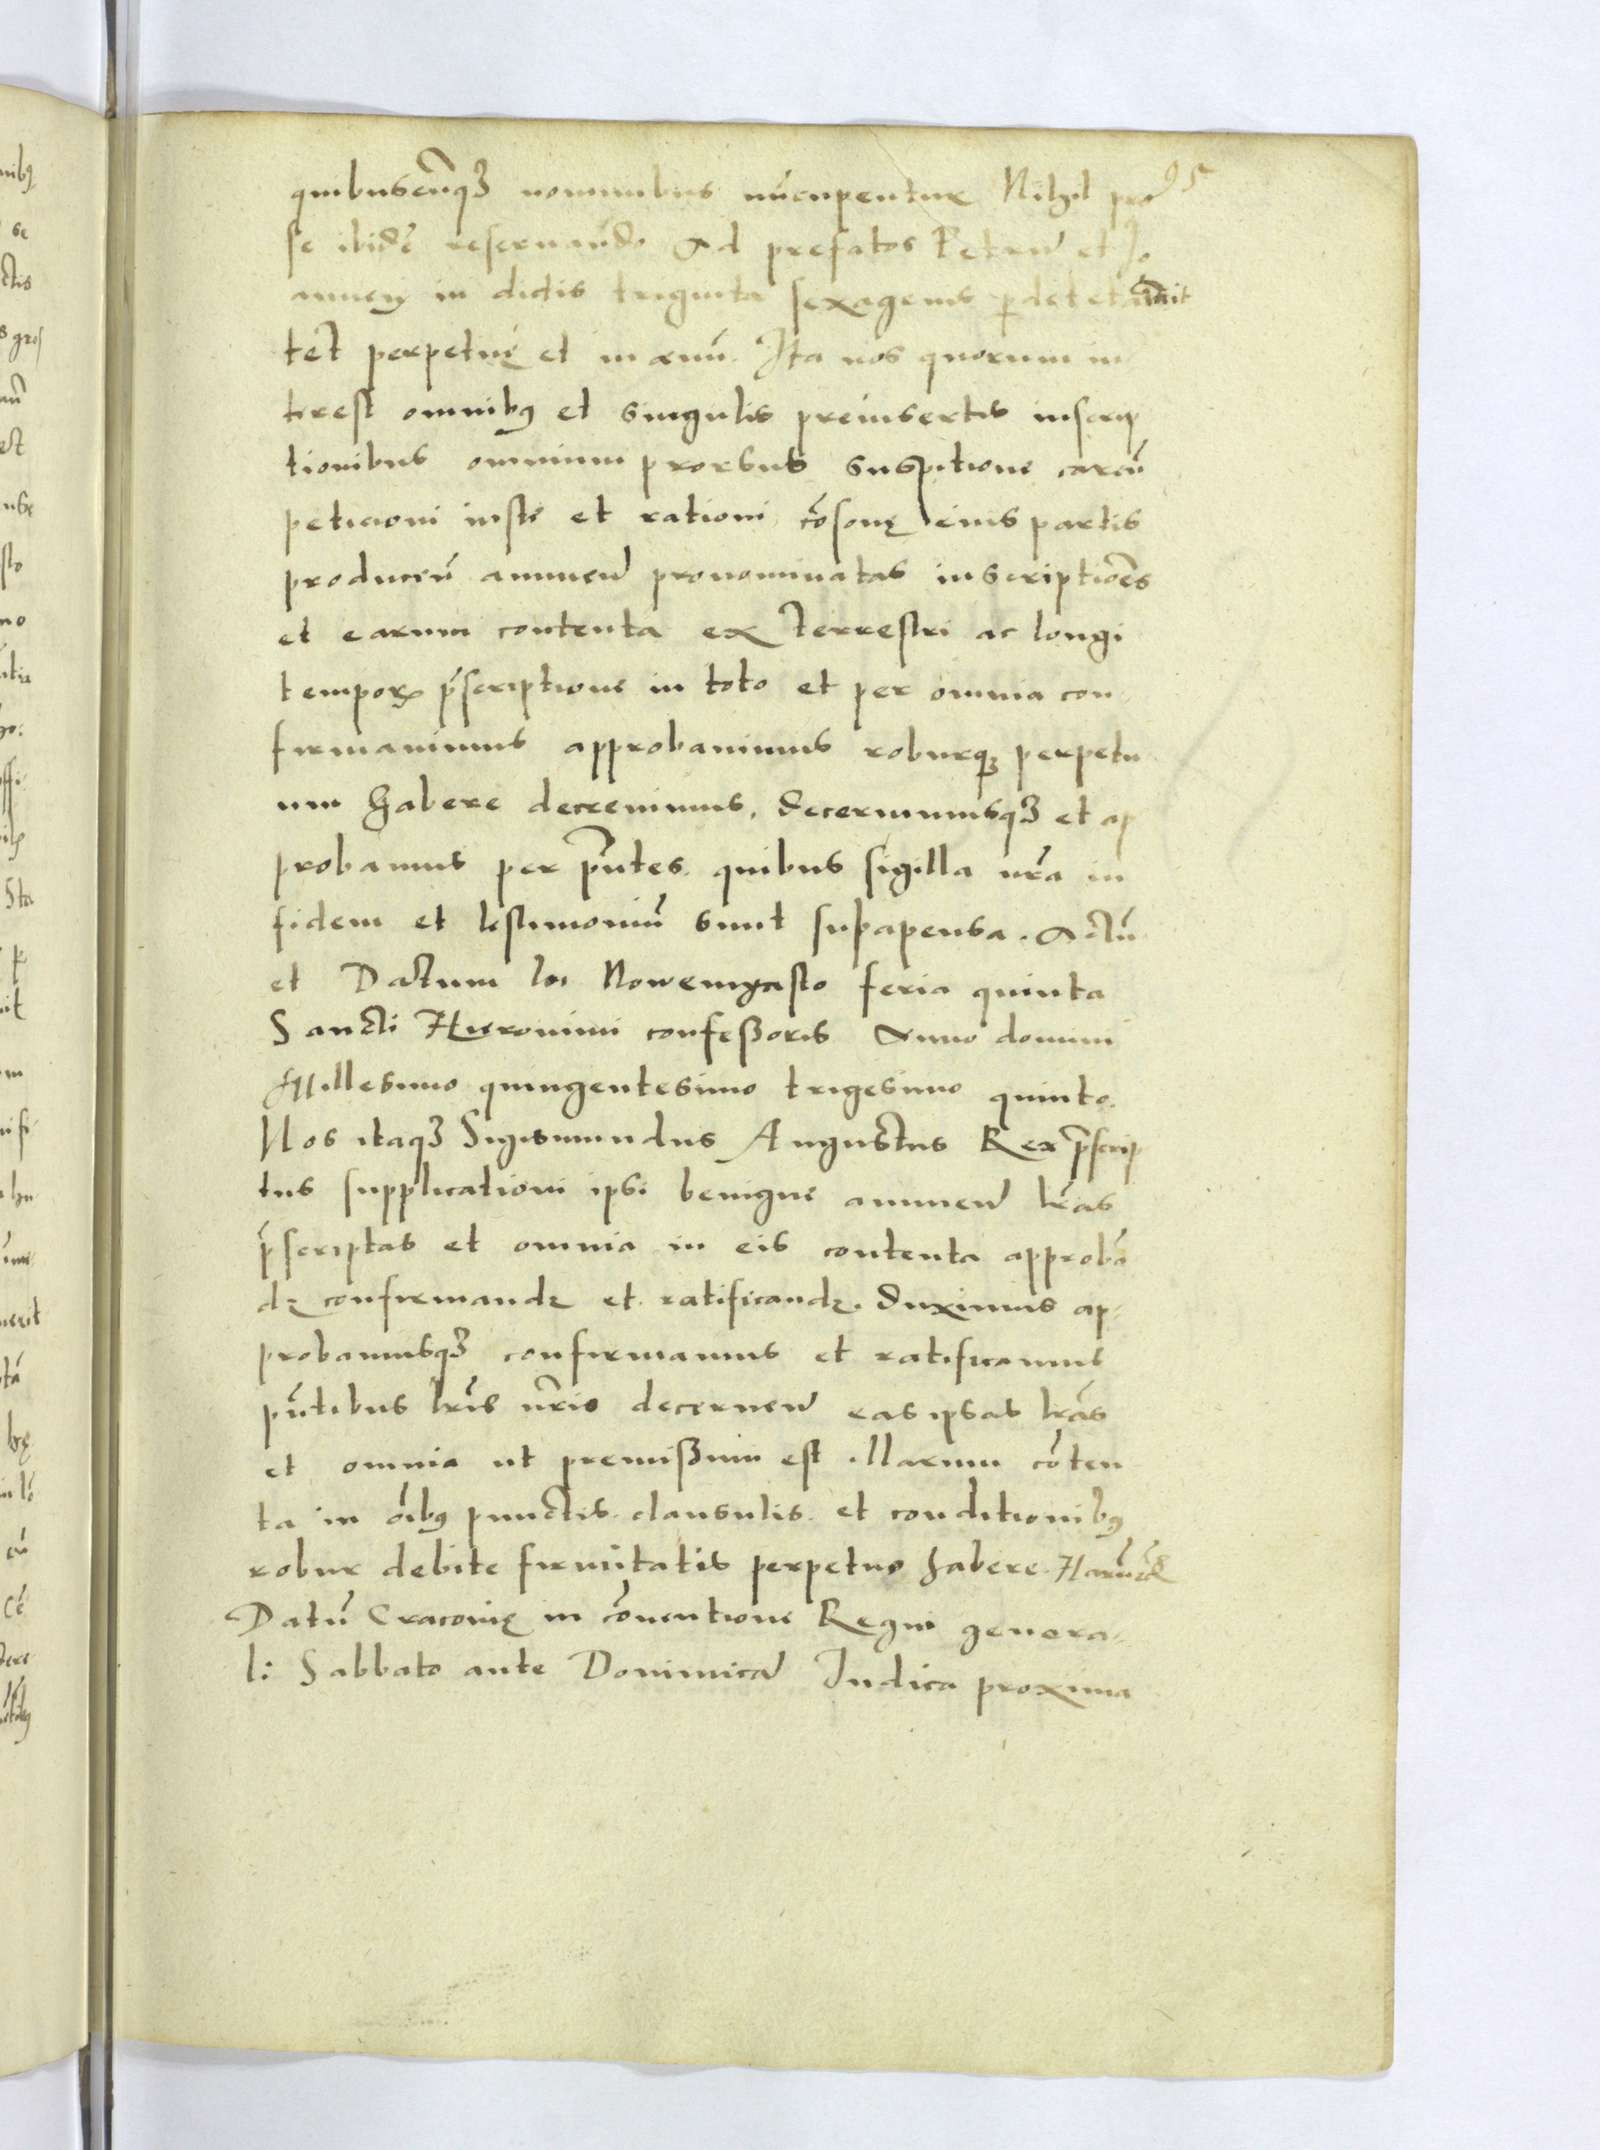 95
quibuscūqꝫ nominibus nūcupentur Nihil pro
se ibidē reseruando Ad prefatos Petrū et Jo
annem in dictis triginta sexagenis
tet perpetuę et in ęuū. Ita nos quorum in
terest omnibꝯ et singulis preinsertis inscrip
tionibus omnium prorsus suspitione caren̄
peticioni iustę et rationi cōsonę eius partis
producen̄ annuen̄ pronominatas inscriptiões
et earum contenta ex terrestri ac longi
temporꝭ p̄scriptione in toto et per omnia con
firmauimus approbauimus roburqꝫ perpetu
um habere decreuimus, decernimusqꝫ et ap
probamus per p̄ntes. quibus sigilla nr̄a in
fidem et testimoniū sunt subapensa. Actū
et Datum in Nowemyasto feria quinta
Sancti Hieronimi confessoris Anno domini
Millesimo quingentesimo trigesimo quinto.
Nos itaqꝫ Sigismundus Augustus Rex p̄scrip
tus supplicationi ipsi benigne annuen̄ lr̄as
p̄scriptas et omnia in eis contenta approbā
dę confirmandę et ratificandę. duximus ap-
probamusqꝫ confirmamus et ratificamus
p̄ntibus lr̄is nr̄is decernen̄ eas ipsas lr̄as
et omnia ut premissum est illarum cōten
ta in oībꝯ punctis clausulis et conditionibꝯ
robur debite firmitatis perpetuo habere.
Datū Cracovię in cōventione Regni genera-
li Sabbato ante Dominicā Judica proxima